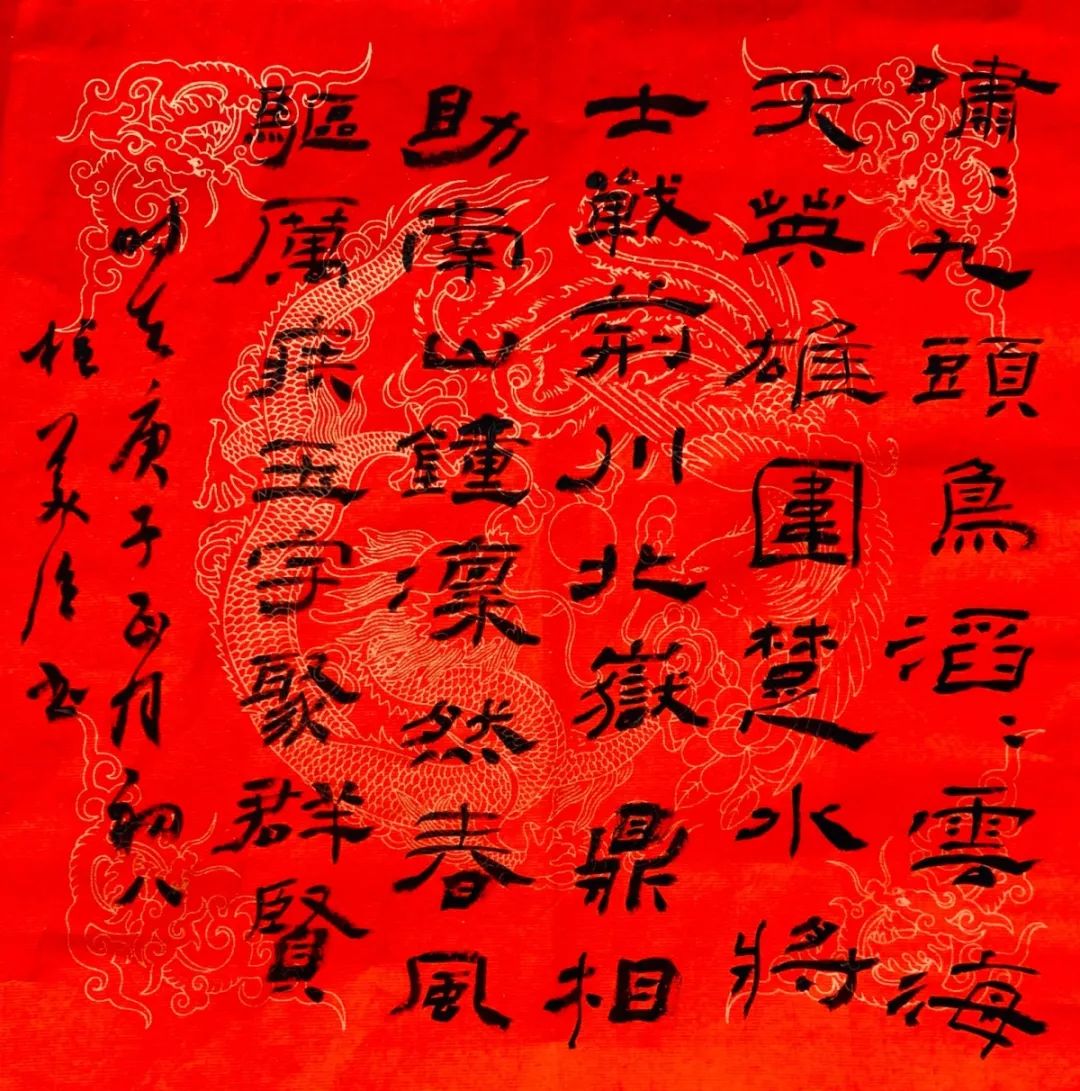 嘯〻九頭鳥滔〻雲海
天英雄圍楚水將
士戰荊川北嶽鼎相
助南山鍾凜然春風
驅厲疾玉宇聚群賢
时在庚子正月初八
书